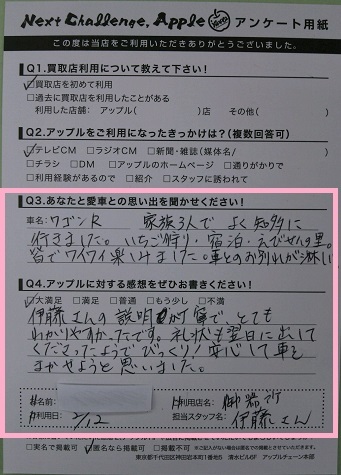 Next Challenge, Apple アンケート用紙
この度は当店をご利用いただきありがとうございました。
Q1.買取店利用について教えて下さい!
☑買取店を初めて利用
□過去に買取店を利用したことがある
利用した店舗: アップル( )店 その他( )
Q2.アップルをご利用になったきっかけは?(複数回答可)
☑テレビCM □ラジオCM □新聞・雑誌(媒体名/ )
□チラシ □DM □アップルのホームページ □通りがかりで
□利用経験があるので □紹介 □スタッフに誘われて
Q3.あなたと愛車との思い出を聞かせください!
車名:ワゴンR 家族3人で よく知多に
行きました。いちご狩り・宿泊・えびせんの里。
皆でワイワイ楽しみました。車とのお別れが淋しい
Q4.アップルに対する感想をぜひお書きください!
☑大満足 □満足 □普通 □もう少し □不満
伊藤さんの説明が丁寧で、とても
わかりやすかったです。礼状も翌日に出して
くださったようで、びっくり!安心して車を
まかせようと思いました。
お名前:
ご利用店名: 御器所
ご利用日: 2/12
担当スタッフ名: 伊藤さん
□実名で掲載可 ☑匿名なら掲載可 □掲載不可
東京都千代田区神田岩本町1番地5 清水ビル6F アップルチェーン本部